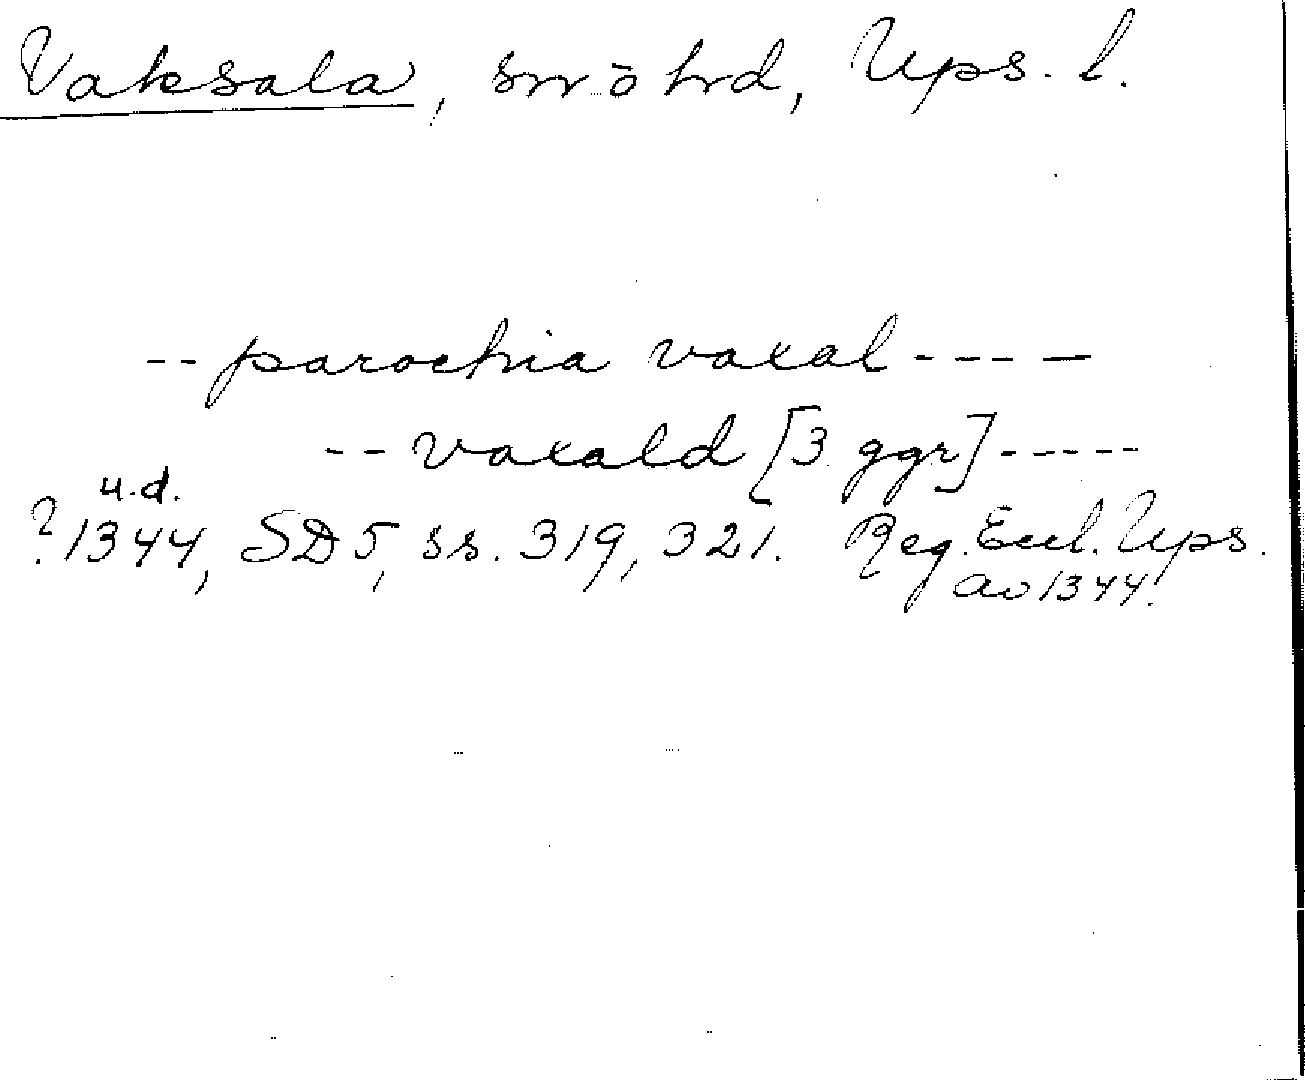 Vaksala, sn o hd, Ups. l.
-- parochia vaxal - - - -
-- vaxald [3 ggr] - - - - -
u.d.
? 1344, SD 5, ss. 319, 321. Reg. Eccl. Ups.
av 1344.